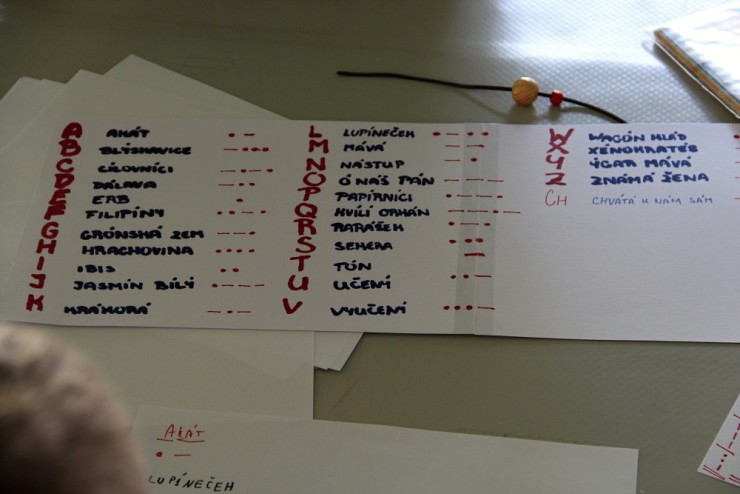 A AKÁT • —
B BLÝSKAVICE — • • •
C CÍLOVNÍCI — • — •
D DÁLAVA — • •
E ERB •
F FILIPÍNY • • — •
G GRÓNSKÁ ZEM — — •
H HRACHOVINA • • • •
I IBIS • •
J JASMÍN BÍLÝ • — — —
K KRÁKORÁ — • —
L LUPÍNEČEK • — • •
M MÁVÁ — —
N NÁSTUP — •
O Ó NÁŠ PÁN — — —
P PAPÍRNÍCI • — — •
Q KVÍLÍ ORKÁN — — • —
R RARÁŠEK • — •
S SEKERA • • •
T TÓN —
U UČENÍ • • —
V VYUČENÍ • • • —
W WAGÓN KLÁD
X XÉNOKRATÉS
Y ÝGAR MÁVÁ
Z ZNÁMÁ ŽENA
CH CHVÁTÁ K NÁM SÁM
AKÁT
• —
LUPÍNEČEK